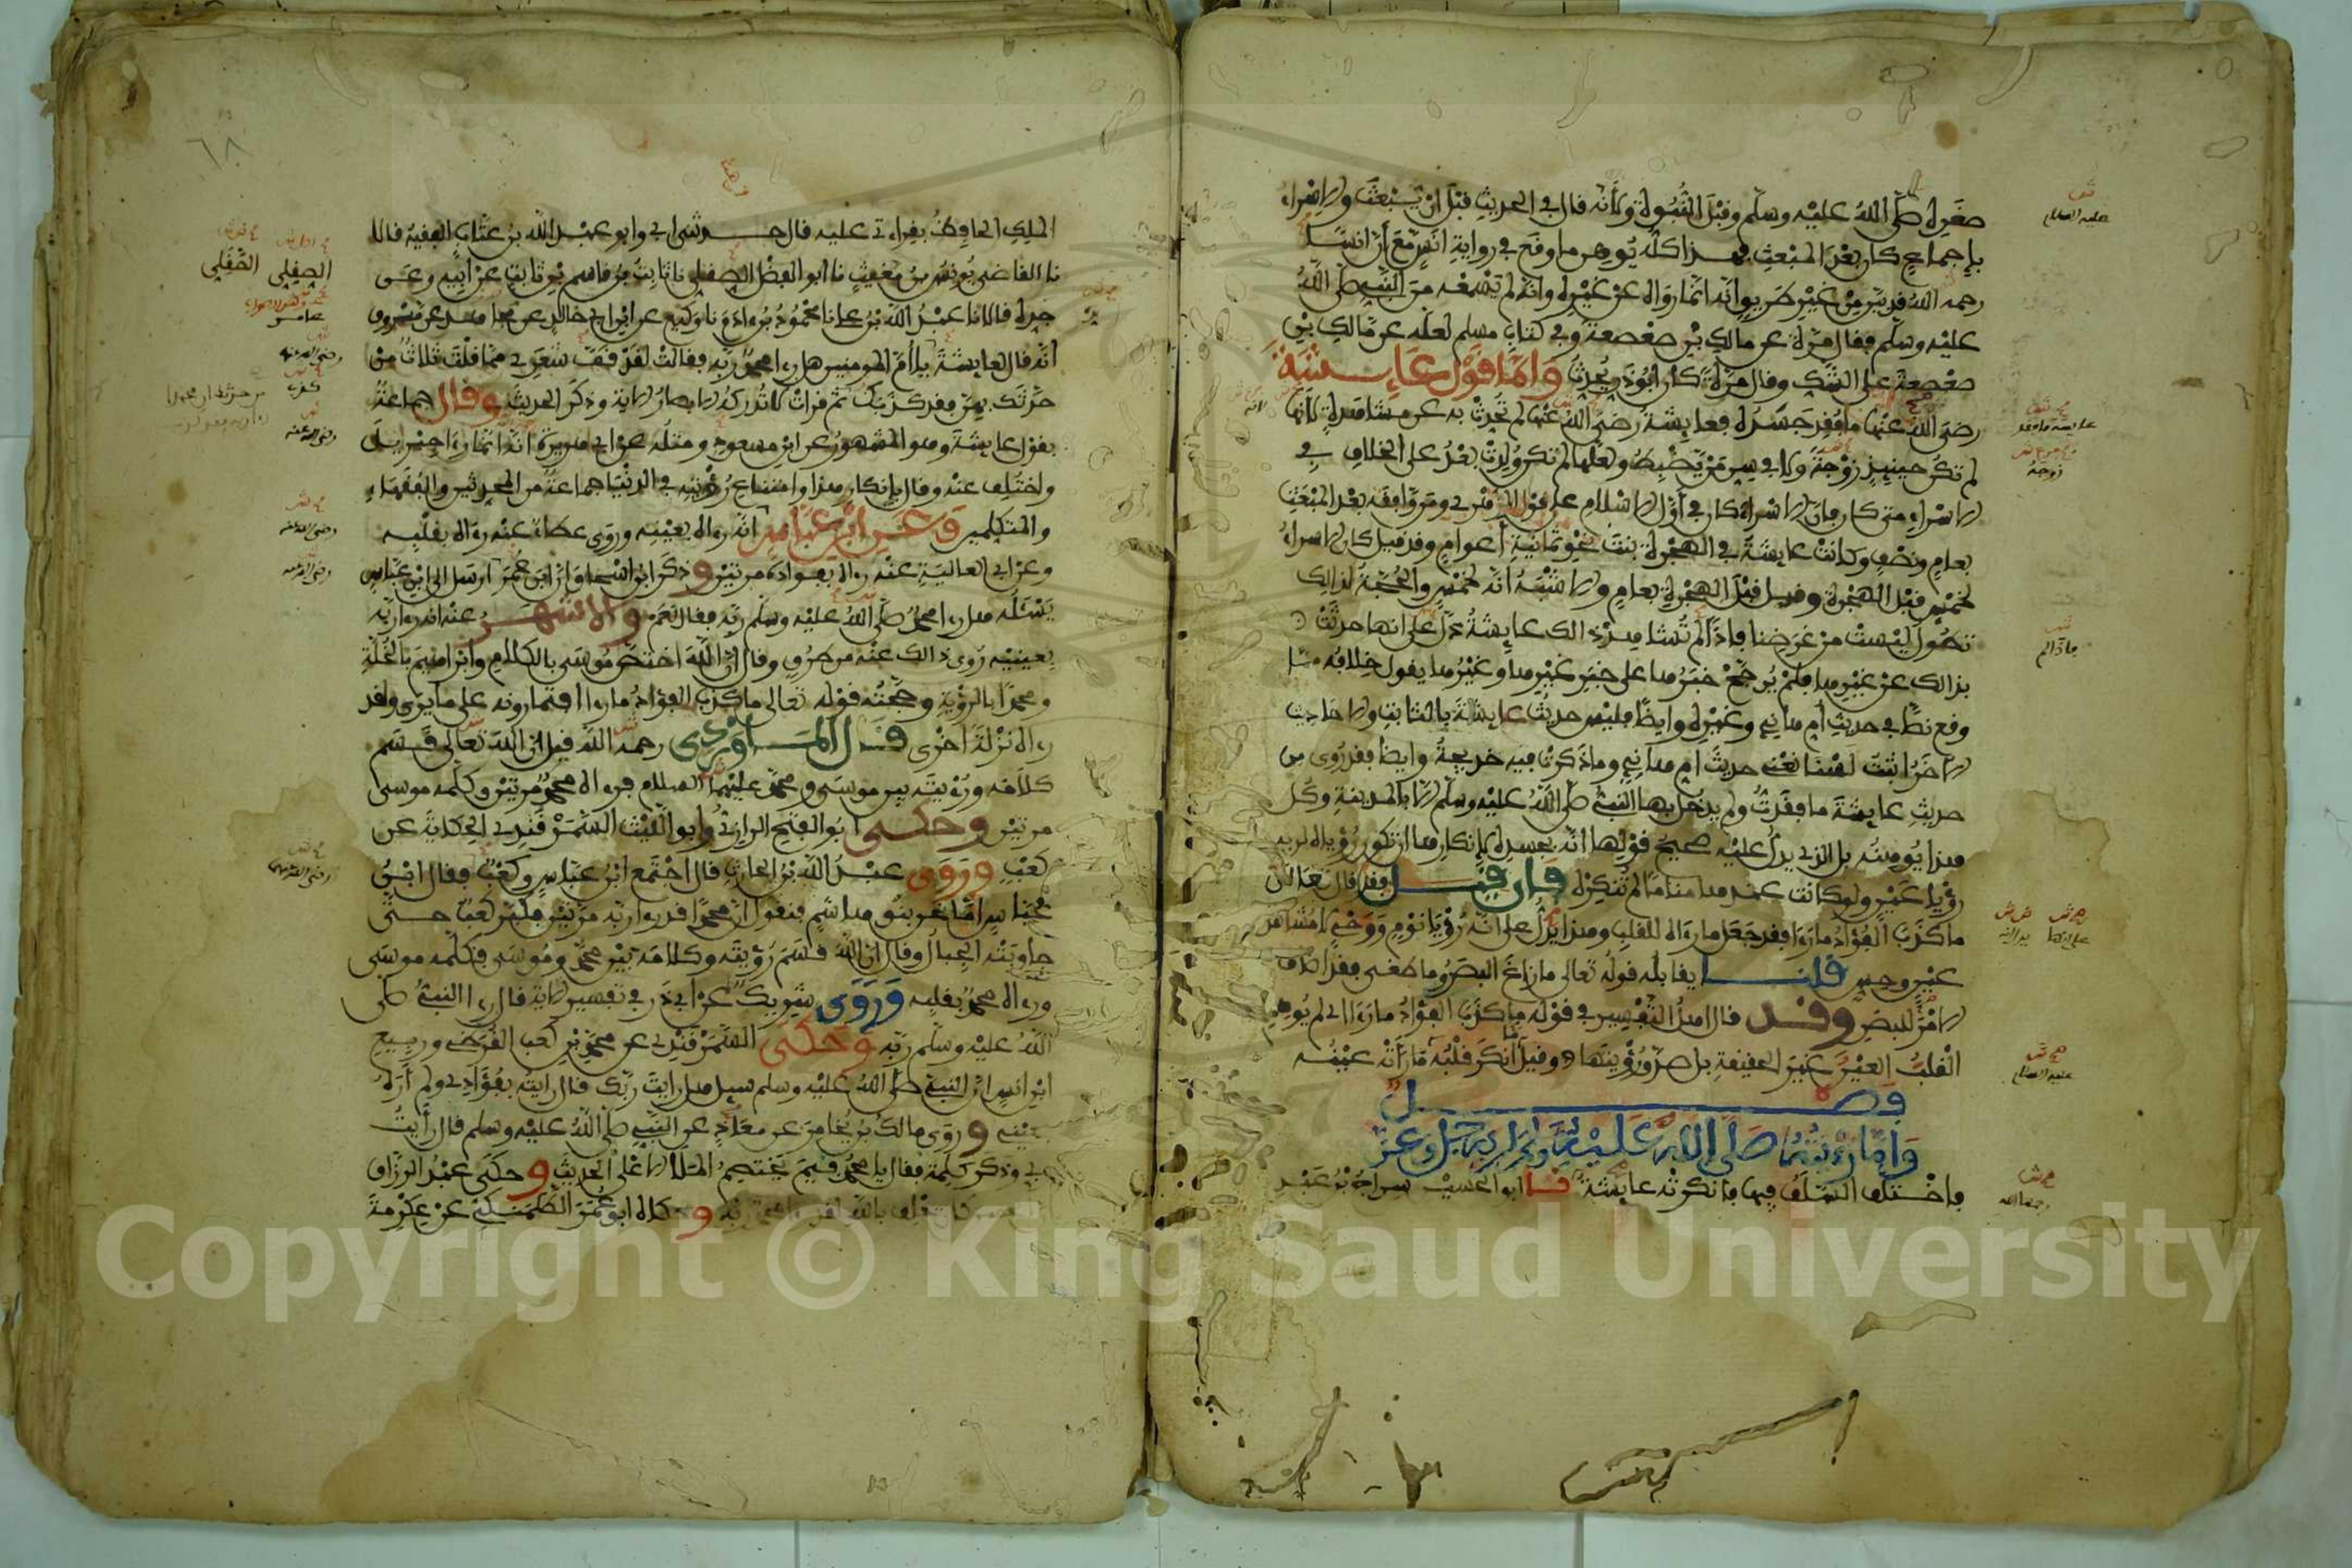 صغره صلى الله عليه وسلم وقبل النبوة ولأنه قال في الحديث قبل أن يبعث والإسراء
بإجماع كان بعد المبعث فهذا كله يوهن ما وقع في رواية أنس مع أن أنسا
رحمه الله قد بين من غير طريق أنه إنما رواه عن غيره وأنه لم يسمعه من النبي صلى الله
عليه وسلم فقال مرة عن مالك بن صعصعة وفي كتاب مسلم لعله عن مالك بن
صعصعة على الشك وقال مرة كان أبو ذر يحدث وأما قول عائشة
رضي الله عنها ما فقد جسده فعائشة رضي الله عنها لم تحدث به عن مشاهدة لأنها
لم تكن حينئذ زوجة ولا في سن من يضبط ولعلها لم تكن ولدت بعد على الخلاف في
الإسراء متى كان فإن الإسراء كان في أول الإسلام على قول الزهري ومن وافقه بعد المبعث
بعام ونصف وكانت عائشة في الهجرة بنت نحو ثمانية أعوام وقد قيل كان الإسراء
لخمس قبل الهجرة وقيل قبل الهجرة بعام والأشبه أنه لخمس والحجة لذلك
تطول ليست من غرضنا فإذا لم تشاهد ذالك عائشة دل على أنها حدثت
بذالك عن غيرها فلم يرجح خبرها على خبر غيرها وغيرها يقول خلافه مما
وقع نصا في حديث أم هانئ وغيره وأيضا فليس حديث عائشة بالثابت والأحاديث
الأخر أثبت لسنا نعني حديث أم هانئ وما ذكرت فيه خديجة وأيضا فقد روي من
حديث عائشة ما فقدت ولم يدخل بها النبي صلى الله عليه وسلم إلا بالمدينة وكل
هذا يوهنه بل الذي يدل عليه صحيح قولها أنه بجسده لإنكارها أن تكون رؤياه لربه
رؤيا عين ولو كانت عندها مناما لم تنكره فإن قيل فقد قال تعالى
ما كذب الفؤاد ما رأى فقد جعل ما رآه للقلب وهذا يدل على أنه رؤيا نوم ووحي لا مشاهدة
عين وحس قلنا يقابله قوله تعالى ما زاغ البصر وما طغى فقد أضاف
الأمر للبصر وقد قال أهل التفسير في قوله ما كذب الفؤاد ما رأى أي لم يوهم
القلب العين غير الحقيقة بل صدق رؤيتها وقيل ما أنكر قلبه ما رأته عينه
فصل
وأما رؤيته صلى الله عليه وسلم لربه جل وعز
فاختلف السلف فيها فأنكرته عائشة نا أبو الحسين سراج بن عبد
عليه السلام
عايشة ما فقد
زوجة
فإذا لم
عليه السلام
رحمه الله
٦٨
الملك الحافظ بقراءتي عليه قال حدثني أبي وأبو عبد الله بن عتاب الفقيه قالا
نا القاضي يونس بن مغيث نا أبو الفضل الصقلي نا ثابت بن قاسم بن ثابت عن أبيه وعن
جده قالا نا عبد الله بن علي نا محمود بن آدم نا وكيع عن ابن أبي خالد عن مجاهد عن مسروق
أنه قال لعائشة يا أم المومنين هل رأى محمد ربه فقالت لقد قف شعري مما قلت ثلاث من
حدثك بهن فقد كذبك ثم قرأت لا تدركه الأبصار الآية وذكر الحديث وقال جماعة
بقول عائشة وهو المشهور عن ابن مسعود ومثله عن أبي هريرة أنه إنما رأى جبريل
واختلف عنه وقال بإنكار هذا وامتناع رؤيته في الدنيا جماعة من المحدثين والفقهاء
والمتكلمين وعن ابن عباس أنه رآه بعينه وروى عطاء عنه رآه بقلبه
وعن أبي العالية عنه رآه بفؤاده مرتين وذكر ابن إسحاق أن ابن عمر أرسل إلى ابن عباس
يسئله هل رأى محمد صلى الله عليه وسلم ربه فقال نعم والأشهر عنه أنه رأى ربه
بعينيه روي ذالك عنه من طرق وقال إن الله اختص موسى بالكلام وإبراهيم بالخلة
ومحمدا بالرؤية وحجته قوله تعالى ما كذب الفؤاد ما رأى أفتمارونه على ما يرى ولقد
رآه نزلة أخرى قال الماوردي رحمه الله قيل إن الله تعالى قسم
كلامه ورؤيته بين موسى ومحمد عليهما السلام فرآه محمد مرتين وكلمه موسى
مرتين وحكى أبو الفتح الرازي وأبو الليث السمرقندي الحكاية عن
كعب وروى عبد الله بن الحارث قال اجتمع ابن عباس وكعب فقال ابن
عباس أما نحن بنو هاشم فنقول إن محمدا قد رأى ربه مرتين فكبر كعب حتى
جاوبته الجبال وقال إن الله قسم رؤيته وكلامه بين محمد وموسى فكلمه موسى
ورآه محمد بقلبه وروى شريك عن أبي ذر في تفسير الآية قال رأى النبي صلى
الله عليه وسلم ربه وحكى السمرقندي عن محمد بن كعب القرظي وربيع
ابن أنس أن النبي صلى الله عليه وسلم سيل هل رأيت ربك قال رأيته بفؤادي ولم أره
بعيني وروى مالك بن يخامر عن معاذ عن النبي صلى الله عليه وسلم قال رأيت
ربي وذكر كلمة فقال يا محمد فيم يختصم الملأ الأعلى الحديث وحكى عبد الرزاق
كان يحلف بالله لقد رأى محمد ربه وحكاه أبو عمر الطلمنكي عن عكرمة
الصقلي الصقلي
عامر
رضي الله عنه
كذب
رضي الله عنه
رضي الله عنه
رضي الله عنه
رضي الله عنهما
Copyright © King Saud University